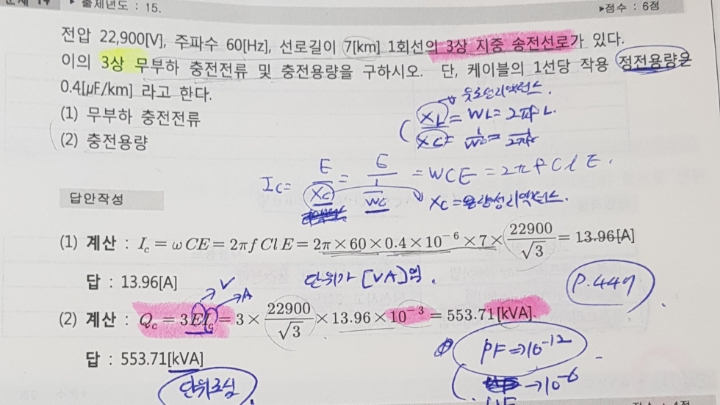 ▶ 출제년도 : 15.
▶점수 : 6점
전압 22,900[V], 주파수 60[Hz], 선로길이 7[km] 1회선의 3상 지중 송전선로가 있다.
이의 3상 무부하 충전전류 및 충전용량을 구하시오. 단, 케이블의 1선당 작용 정전용량은
0.4[μF/km] 라고 한다.
(1) 무부하 충전전류
(2) 충전용량
유도성리액턴스.
XL = WL = 2πfL.
Xc = 1/wc = 1/2πfc
Ic = E/Xc = E/(1/wc) = WCE = 2πfClE.
Xc = 용량성리액턴스.
답안작성
(1) 계산 : I_c = ωCE = 2πfClE = 2π×60×0.4×10⁻⁶×7×22900/√3 = 13.96[A]
답 : 13.96[A]
단위가 [VA]임.
P.449
V
A
(2) 계산 : Q_c = 3EI_c = 3×22900/√3×13.96×10⁻³ = 553.71[kVA].
답 : 553.71[kVA]
단위조심
PF ⇒ 10⁻¹²
μF → 10⁻⁶